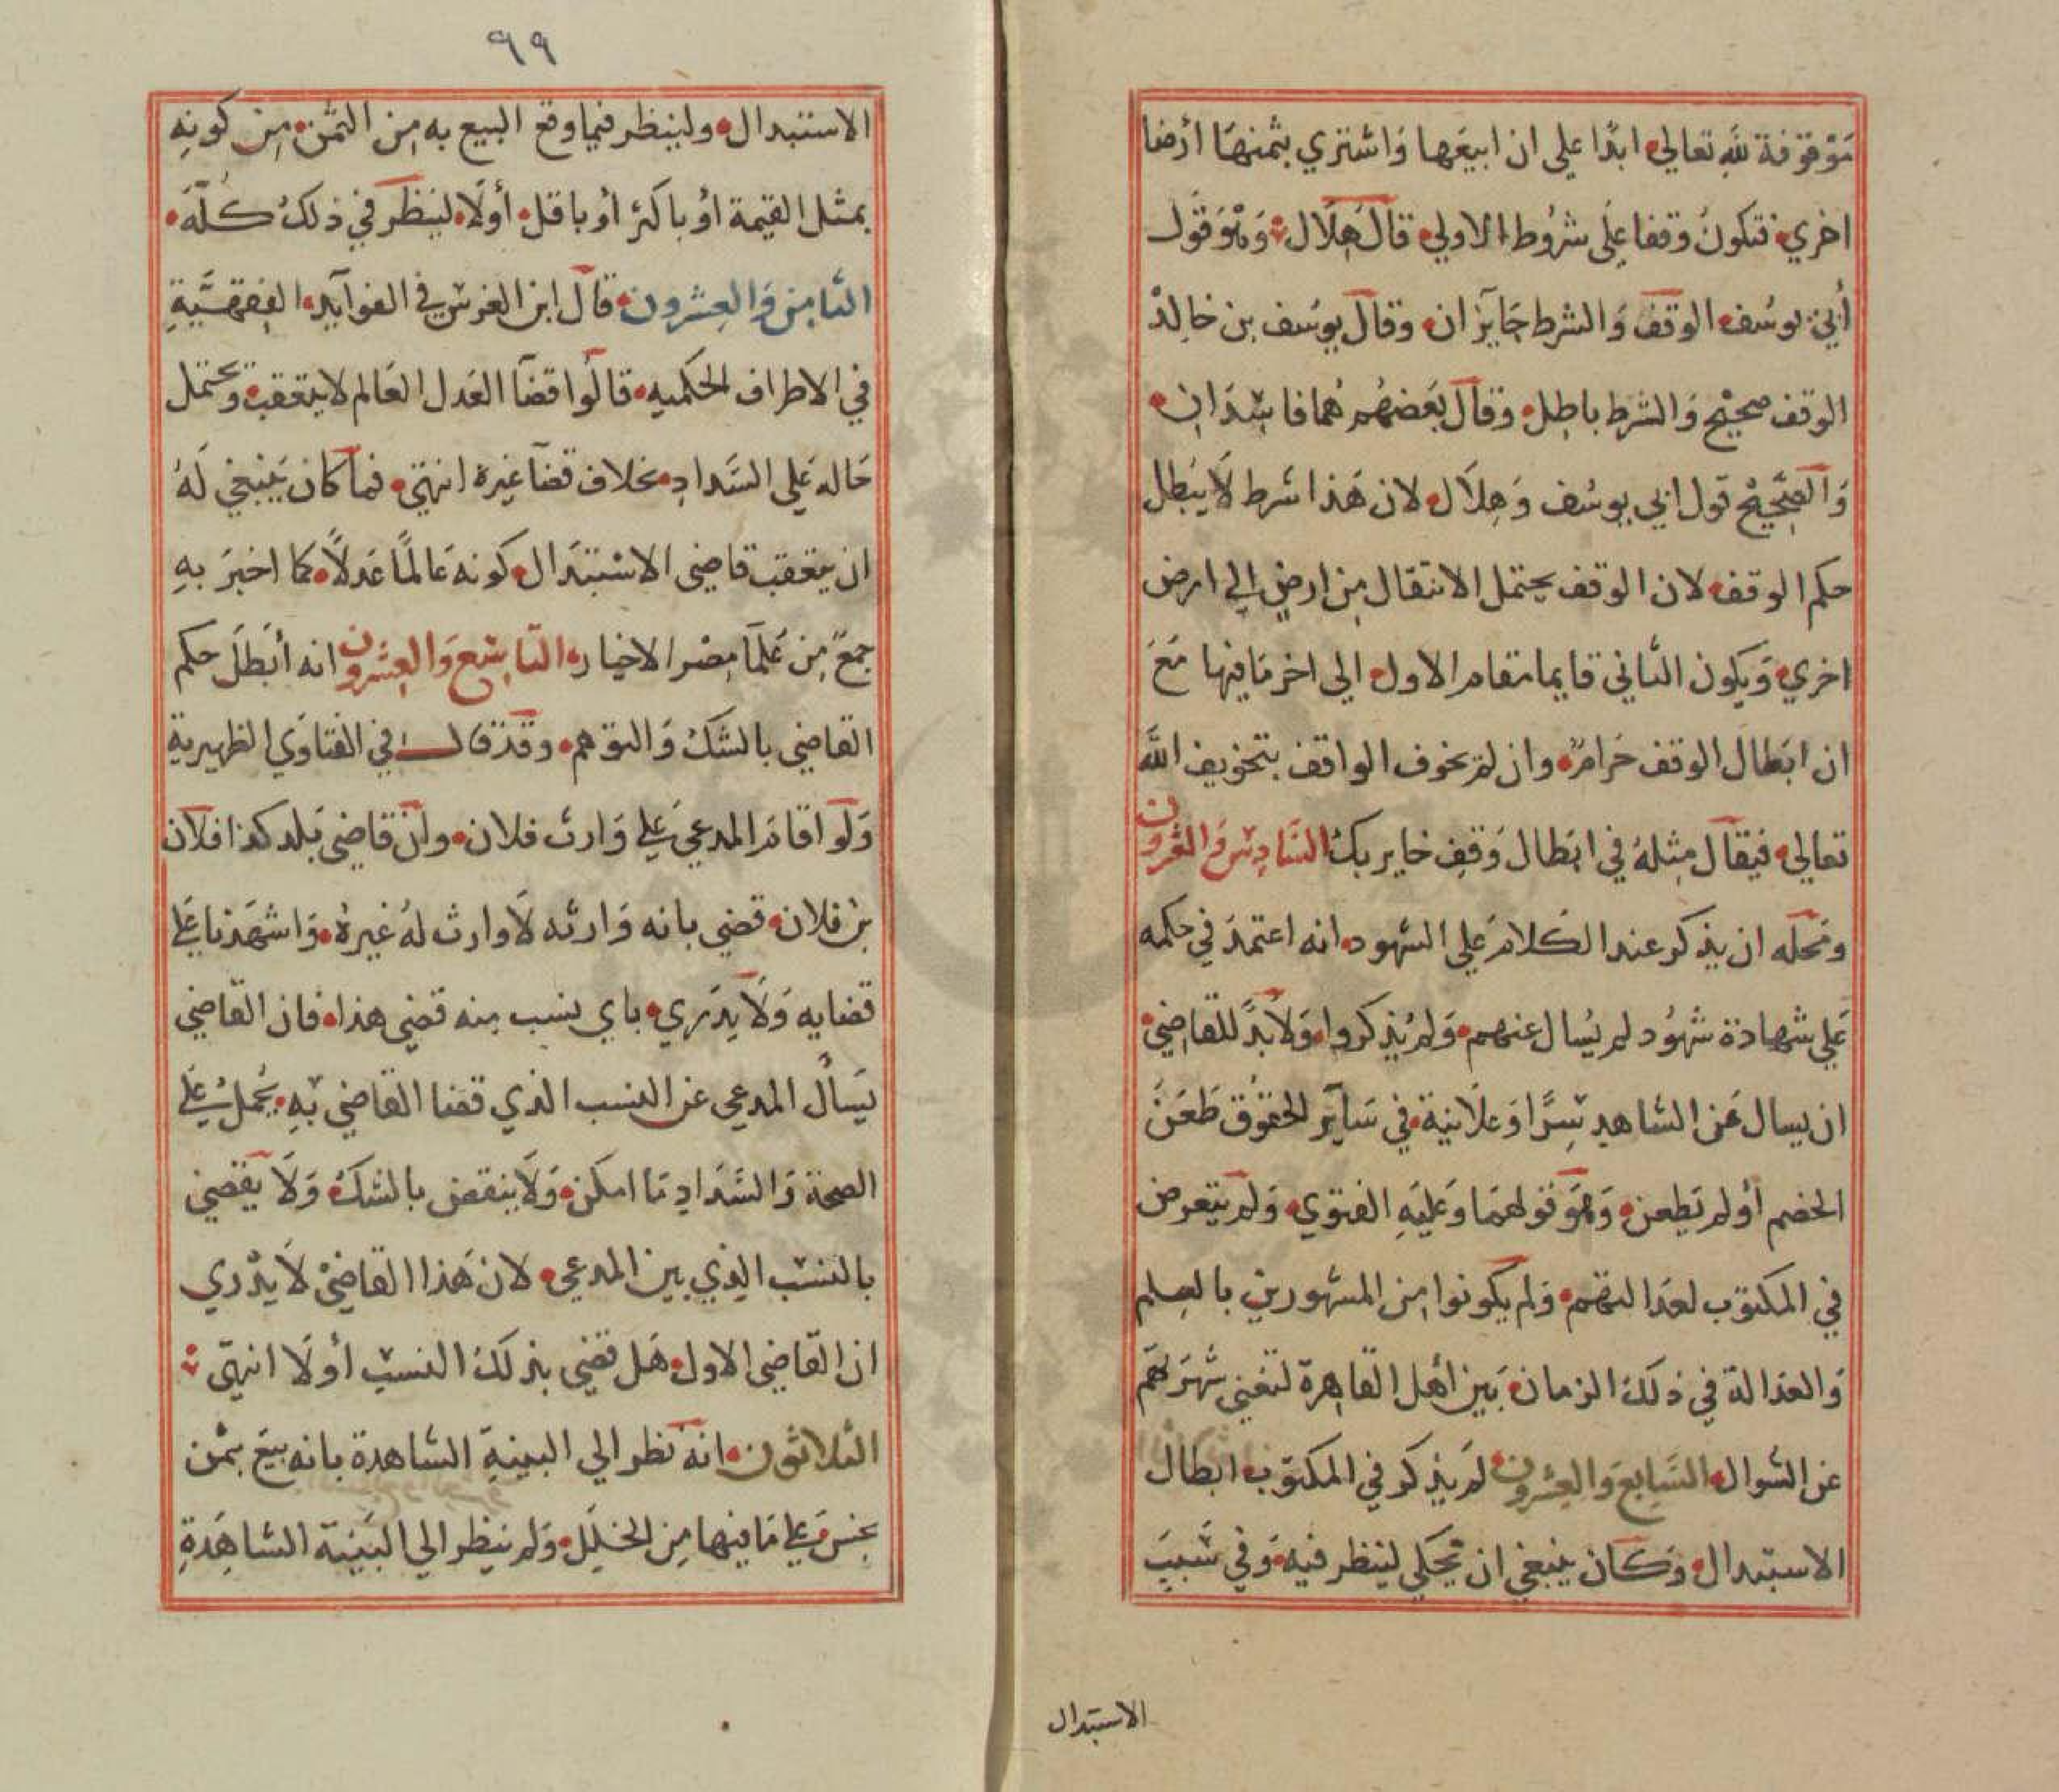 موقوفة لله تعالي ابدا علي ان ابيعها واشتري بثمنها ارضا
اخري فتكون وقفا علي شروط الاولي قال هلال وهو قول
أبي يوسف الوقف والشرط جايزان وقال يوسف بن خالد
الوقف صحيح والشرط باطل وقال بعضهم هما فاسدان
والصحيح قول ابي يوسف وهلال لان هذا شرط لا يبطل
حكم الوقف لان الوقف يحتمل الانتقال من ارض الي ارض
اخري ويكون الثاني قايما مقام الاول الي اخر ما فيها مع
ان ابطال الوقف حرام وان لم يخوف الواقف بتخويف الله
تعالي فيقال مثله في ابطال وقف خاير بك السادس والعشرون
ومحله ان يذكر عند الكلام علي الشهود انه اعتمد في حكمه
علي شهادة شهود لم يسال عنهم ولم يذكروا ولابد للقاضي
ان يسال عن الشاهد سرا وعلانية في سآير الحقوق طعن
الخضم أو لم يطعن وهو قولهما وعليه الفتوي ولم يتعرض
في المكتوب لعدالتهم ولم يكونوا من المشهورين بالعلم
والعدالة في ذلك الزمان بين أهل القاهرة لتغني شهرتهم
عن السوال السابع والعشرون لم يذكر في المكتوب ابطال
الاستبدال وكان ينبغي ان يحكي لينظر فيه وفي سبب
الاستبدال
٩٩
الاستبدال ولينظر فيما وقع البيع به من الثمن من كونه
بمثل القيمة أو باكثر أو باقل أولا لينظر في ذلك كله
الثامن والعشرون قال ابن الغرس في الفوآيد الفقهية
في الاطراف الحكميه قالوا قضآ العدل العالم لا يتعقب ويحتمل
حاله علي السداد بخلاف قضآ غيره انتهي فما كان ينبغي له
ان يتعقب قاضي الاستبدال كونه عالما عدلا كما اخبر به
جمع من علمآ مصر الاخيار التاسع والعشرون انه أبطل حكم
القاضي بالشك والتوهم وقد قال في الفتاوي الظهيرية
ولو اقام المدعي علي وارث فلان وان قاضي بلد كذا فلان
بن فلان قضي بانه وارثه لا وارث له غيره واشهدنا علي
قضايه ولا يدري باي نسب منه قضي هذا فان القاضي
يسأل المدعي عن النسب الذي قضا القاضي به يحمل علي
الصحة والسداد ما امكن ولا ينقض بالشك ولا يقضي
بالنسب الذي بين المدعي لان هذا القاضي لا يدري
ان القاضي الاول هل قضي بذلك النسب أو لا انتهي
الثلاثون انه نظر الي البينة الشاهدة بانه بيع بثمن
بخس علي ما فيها من الخلل ولم ينظر الي البينة الشاهدة